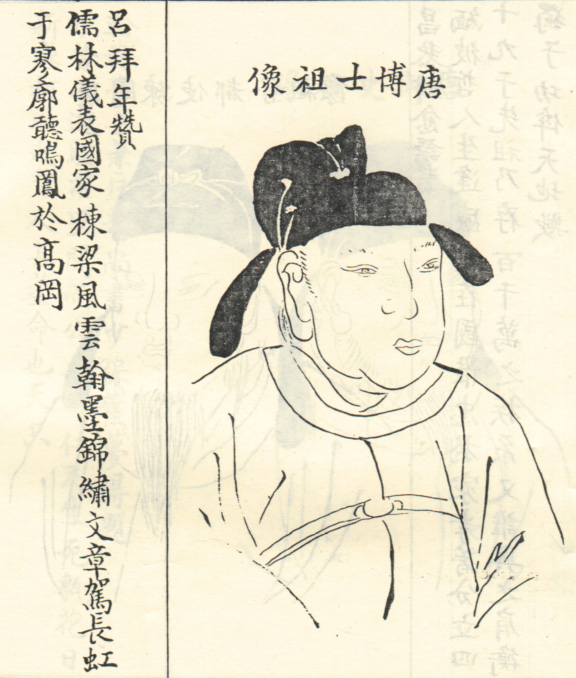 唐博士祖像
呂拜年贊
儒林儀表國家棟梁風雲翰墨錦繡文章駕長虹
于寥廓聽鳴鳳於高岡